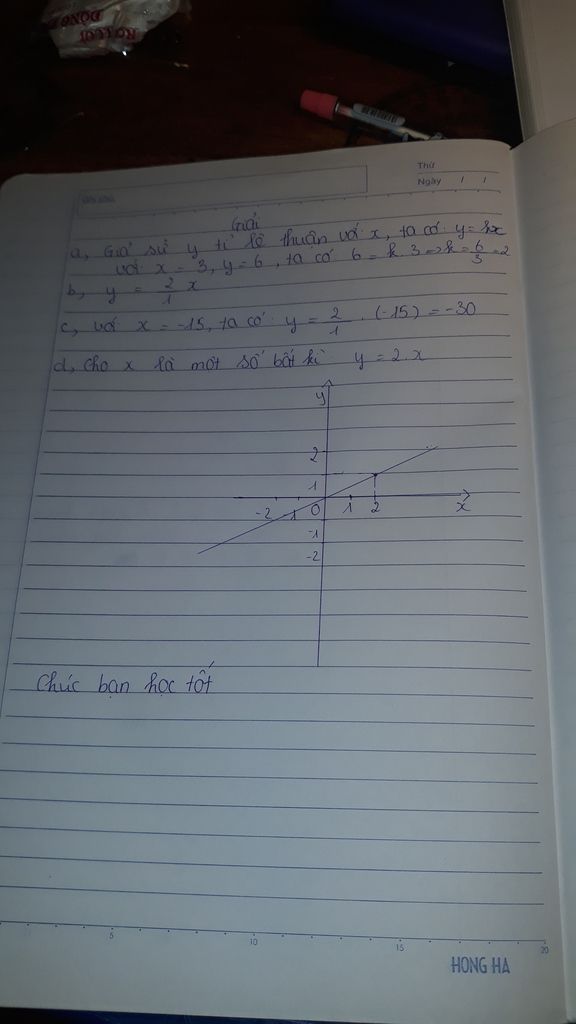 Thứ
Ngày / /
Giải
a, Giả sử y tỉ lệ thuận với x, ta có: y = kx
với x = 3, y = 6, ta có 6 = k.3 => k = 6/3 = 2
b, y = 2/1 x
c, với x = -15, ta có: y = 2/1 . (-15) = -30
d, cho x là một số bất kì y = 2.x
y
2
1
-2 -1 0 1 2 x
-1
-2
Chúc bạn học tốt
5 10 15 20
HONG HA